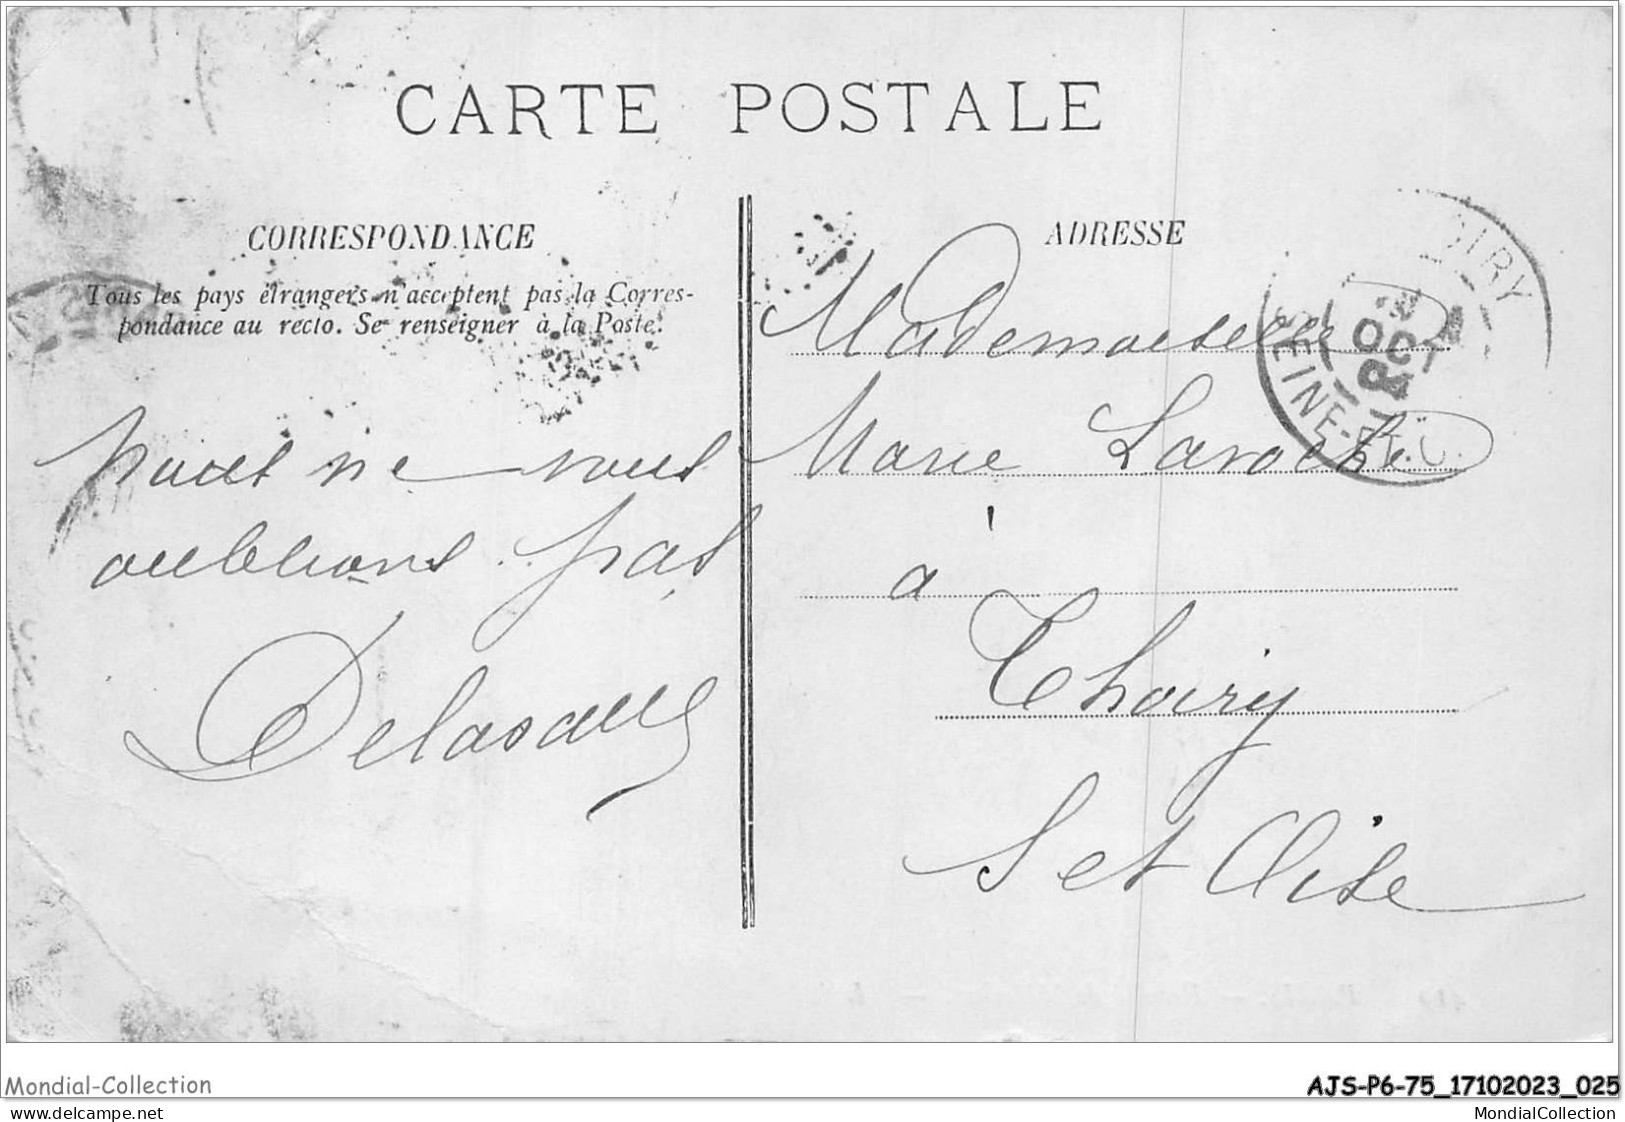 CARTE POSTALE
CORRESPONDANCE
Tous les pays étrangers n'acceptent pas la Corres-
pondance au recto. Se renseigner à la Poste.
nous ne vous
oublions pas
Delasalle
ADRESSE
Mademoiselle
Marie Laroche
à
Thoiry
S et Oise
OIRY
OCT
04
SEINE-ET-O.
Mondial-Collection
AJS-P6-75_17102023_025
www.delcampe.net
MondialCollection